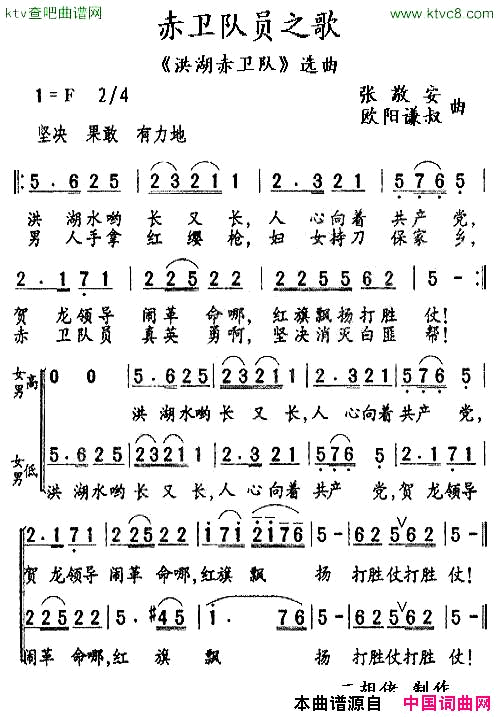 ktv查吧曲谱网
www.ktvc8.com
赤卫队员之歌
《洪湖赤卫队》选曲
1=F 2/4
张敬安
欧阳谦叔 曲
坚决 果敢 有力地
5·625 | 23211 | 2·321 | 5765 |
洪湖水哟 长又长,人心向着 共产党,
男人手拿 红缨枪,妇女持刀 保家乡,
2·171 | 22522 | 225562 | 5- :|
贺龙领导 闹革命哪,红旗飘扬打胜仗!
赤卫队员 真英勇啊,坚决消灭白匪帮!
女高男 0 0 | 5·625 | 23211 | 2·321 | 5765 |
洪湖水哟长又长,人心向着共产党,
女低男 5·625 | 23211 | 2·321 | 5765 | 2·171 |
洪湖水哟长又长,人心向着共产党,贺龙领导
2·171 | 22522 | 1171 2176 | 5- | 625562 | 5- ‖
贺龙领导闹革命哪,红旗飘 扬打胜仗打胜仗!
22522 | 5·#45 | 1·76 | 5- | 625562 | 5- ‖
闹革命哪,红旗飘 扬打胜仗打胜仗!
制作
本曲谱源自
中国词曲网